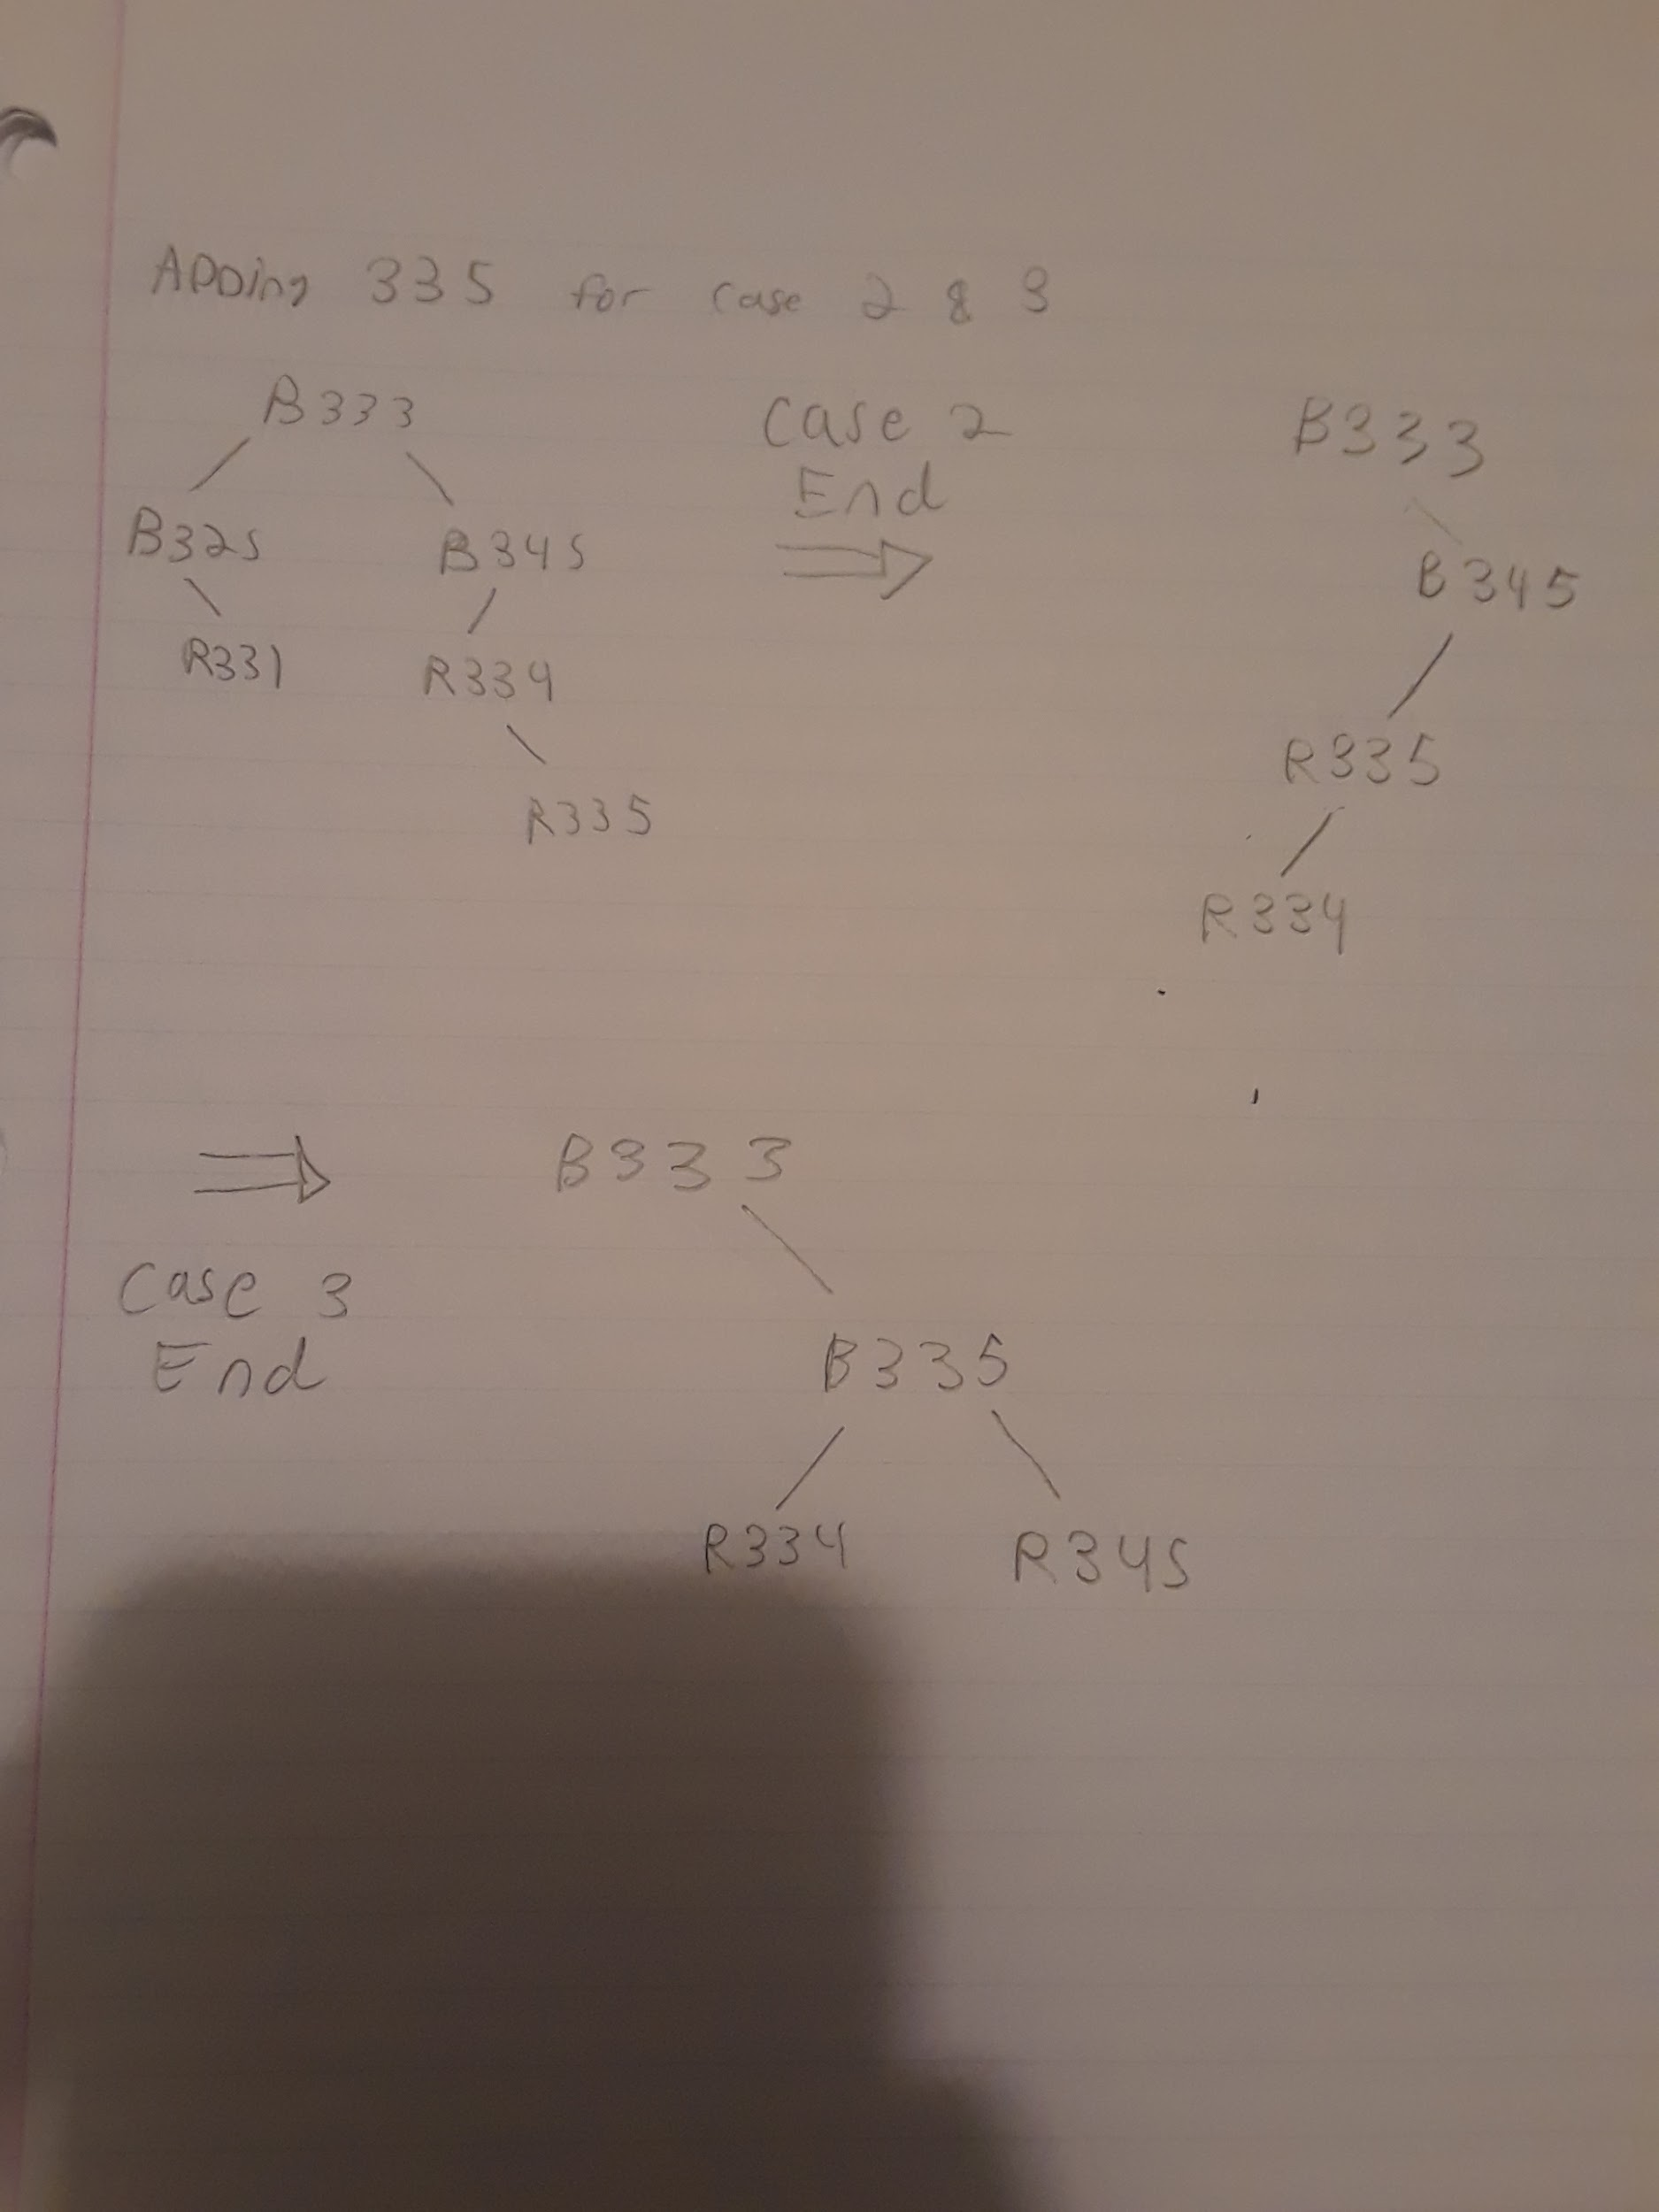 ADDing 335 for case 2 & 3
B333
B325 B345
R331 R334
R335
Case 2
End
B333
B345
R335
R334
Case 3
End
B333
B335
R334 R345